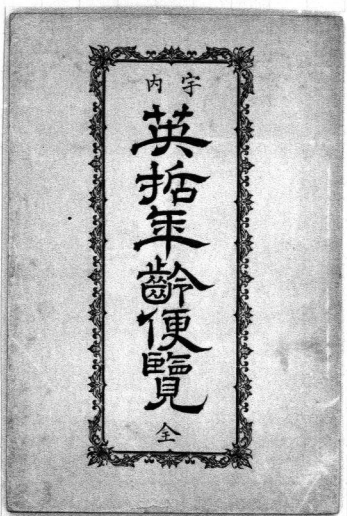 宇内
英括年齡便覽
全